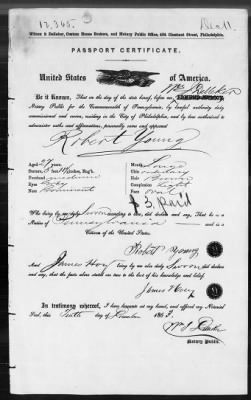 12,365.
Wilson & Dallaker, Custom House Brokers, and Notary Public Office, 424 Chestnut Street, Philadelphia.
PASSPORT CERTIFICATE.
United States of America.
Be it Known, That on the day of the date hereof, before me
Notary Public for the Commonwealth of Pennsylvania, by lawful authority duly
commissioned and sworn, residing in the City of Philadelphia, and by law authorized to
administer oaths and affirmations, personally came and appeared
Robert Young
Aged 27 years. Mouth
Stature, 5 feet inches, Eng'h. Chin ordinary
Forehead medium Hair
Eyes Complexion Light
Nose Prominent Face Oval
$3 Paid
Who being by me duly Sworn according to law, did declare and say, That he is a
Native of Pennsylvania and a
Citizen of the United States.
Robert Young
And James being by me also duly Sworn did declare
and say, that the facts above stated are true to the best of his knowledge and belief.
James
In testimony whereof, I have hereunto set my hand, and affixed my Notarial
Seal, this Tenth day of December 186
Notary Public.